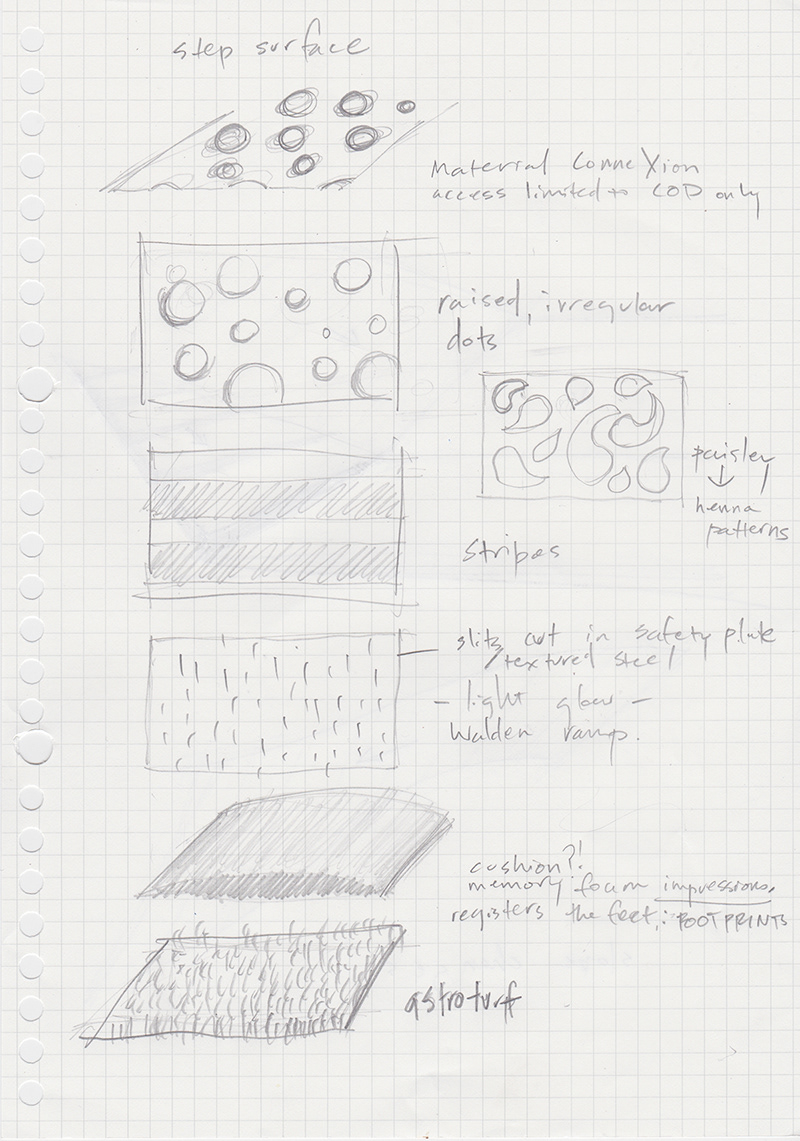 step surface
Material ConneXion
access limited to COD only
raised, irregular
dots
paisley
↓
henna
patterns
stripes
slits cut in safety plate
/textured steel
- light glow -
Walden ramp.
cushion?!
memory foam impressions.
registers the feet, : FOOTPRINTS
astroturf